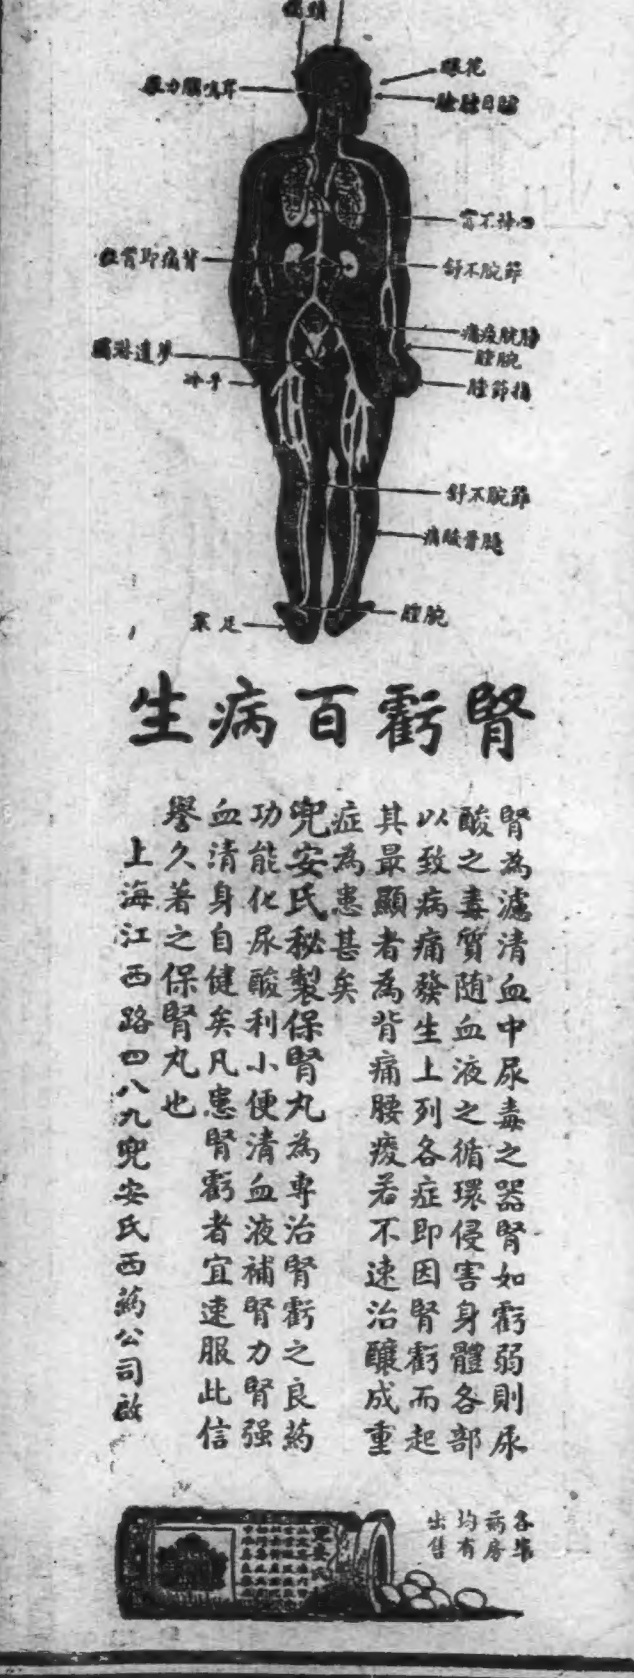 頭
眼花
耳鳴腦力衰
心神不寧
節腕不舒
背痛即腎虧
膀胱痠痛
腕腫
夢遺淋濁
手冷
指節腫
節腕不舒
腿骨酸痛
腕腫
足冷
腎虧百病生
腎為濾清血中尿毒之器腎如虧弱則尿
酸之毒質随血液之循環侵害身體各部
以致病痛發生上列各症即因腎虧而起
其最顯者為背痛腰痠若不速治釀成重
症為患甚矣
兜安氏秘製保腎丸為專治腎虧之良葯
功能化尿酸利小便清血液補腎力腎强
血清身自健矣凡患腎虧者宜速服此信
譽久著之保腎丸也
上海江西路四八九兜安氏西葯公司啟
各埠
葯房
均有
出售